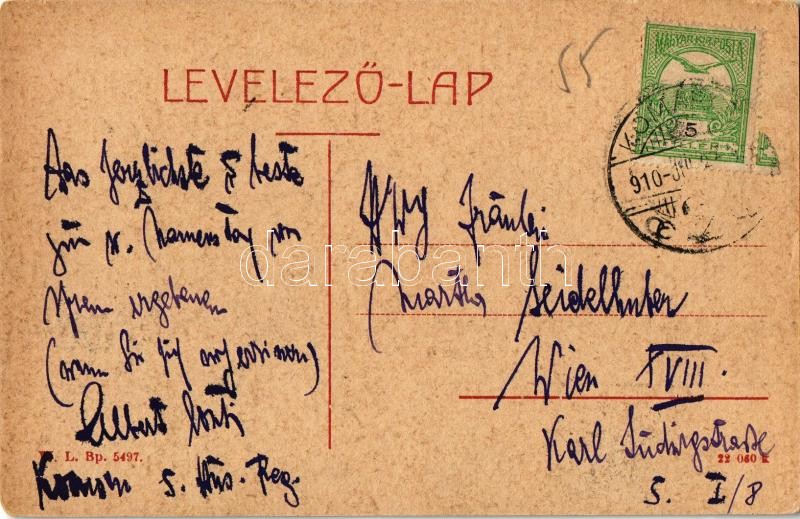 LEVELEZŐ-LAP
55
MAGYAR KIR. POSTA
5
910
Das herzlichste & beste
zum w. Namenstag von
Ihrem ergebenen
(wenn Sie sich noch erinnern)
Albert
Komorn 5. Hus. Reg.
L. Bp. 5497.
Fräulein
Martha Seidelhuber
Wien XVIII.
Karl Ludwigstraße
5. I/8
darabanth